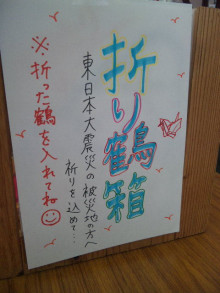 折り鶴箱
東日本大震災の被災地の方へ
祈りを込めて…
※折った鶴を入れてね